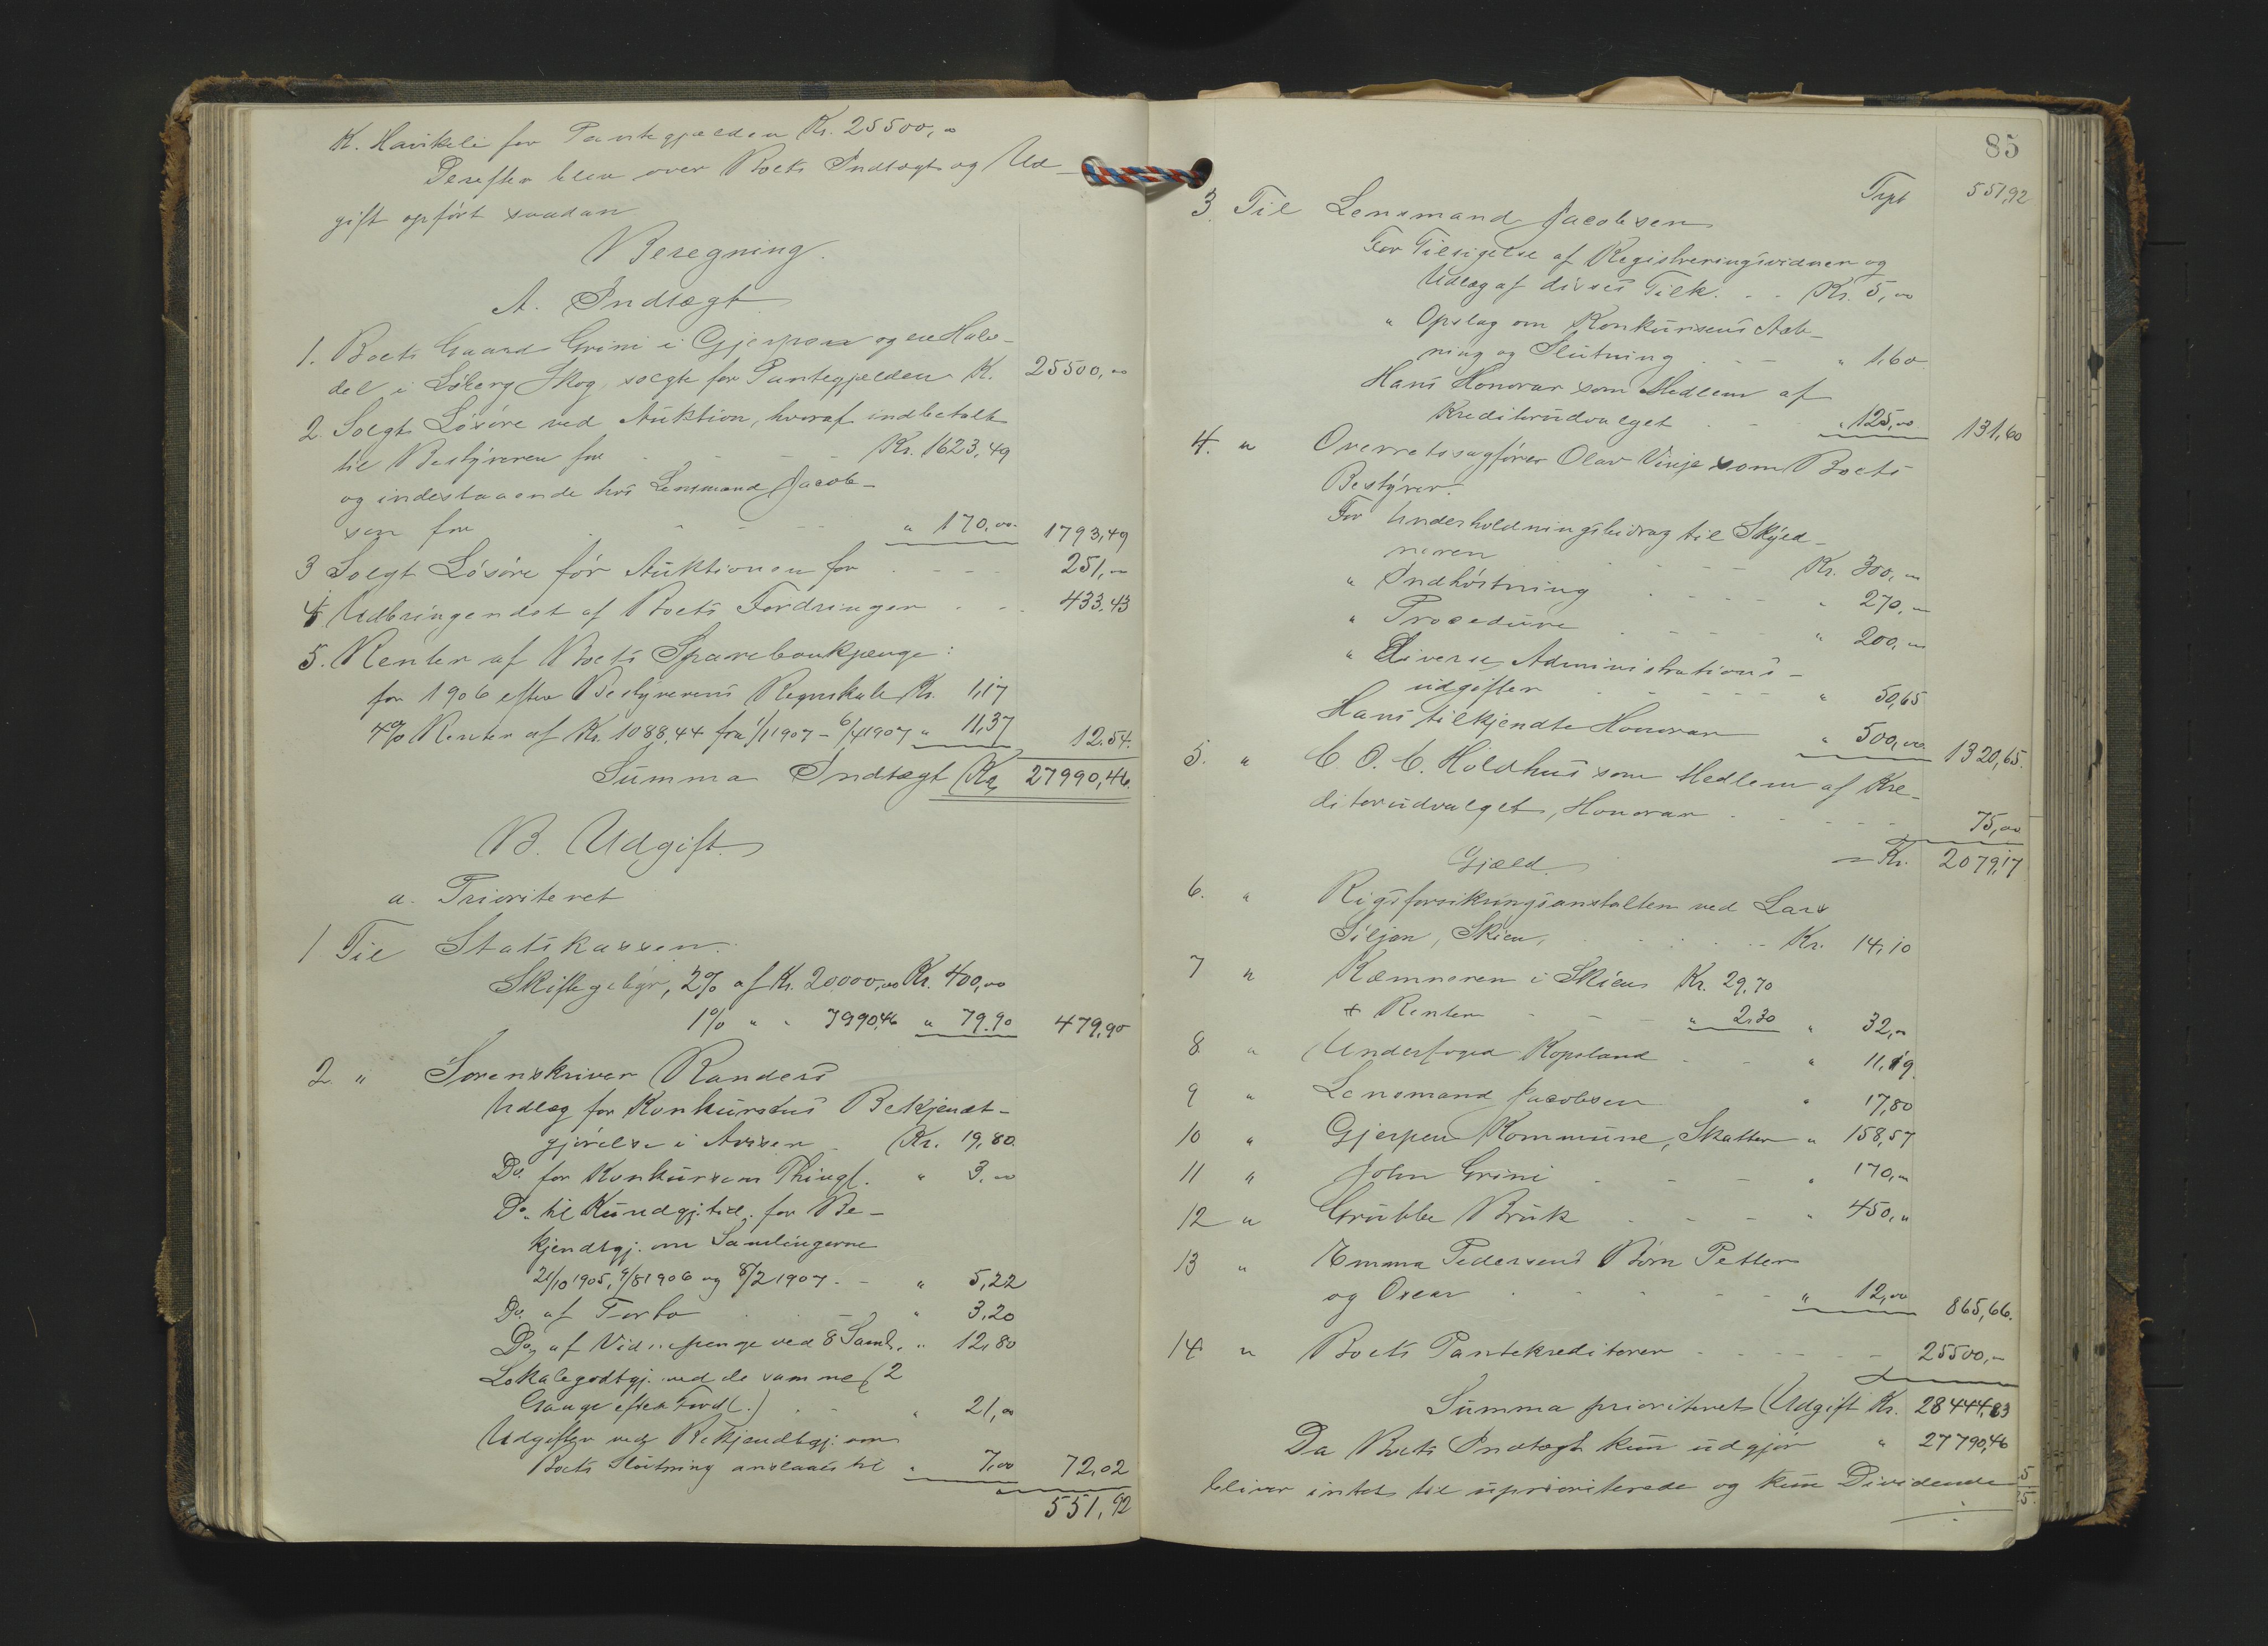 K. Havikeli for Pantegjælden Kr. 25500,00
Derefter blev over Boets Indtægt og Ud-
gift opført saadan
Beregning.
A. Indtægt
1. Boets Gaard Grini i Gjerpen og en Halv-
del i Løberg Skog, solgte for Pantegjælden K. 25500,00
2. Solgt Løsøre ved Auktion, hvoraf indbetalt
til Bestyreren for - - - Kr. 1623,49
og indestaaende hos Lensmand Jacob-
sen for - - - " 170,00 1793,49
3 Solgt Løsøre før Auktionen for - - - 251,00
4. Udbringendet af Boets Fordringer - - - 433,43
5. Renter af Boets Sparebankpenge:
for 1906 efter Bestyrerens Regnskab Kr. 1,17
4% Renter af Kr. 1088,44 fra 1/1 1907 - 6/4 1907 " 11,37 12.54.
Summa Indtægt Kr. 27990,46.
B. Udgift.
a. Prioriteret
1 Til Statskassen.
Skiftegebyr, 2% af Kr. 20000,00 Kr. 400,00
1% " " 7990,46 " 79.90 479,90
2. " Sorenskriver Randers
Udlæg for Konkursens Bekjendt-
gjørelse i Avisen Kr. 19,80.
Do. for Konkursens Thingl. " 3,00
Do. til Kundgj.tid. for Be-
kjendtgj. om Samlingerne
21/10 1905, 9/8 1906 og 8/2 1907 - " 5,22
Do. af Porto - " 3,20
Do. af Vidnepenge ved 8 Saml. " 12,80
Lokalegodtgj. ved de samme (2
Gange efter Ford(.) - " 21,00
Udgifter ved Bekjendtgj. om
Boets Slutning anslaaes til " 7,00 72,02
551,92
85
Trpt 551,92
3. Til Lensmand Jacobsen
For Tilsigelse af Registreringsvidner og
Udlæg af divses Tilk. - - Kr. 5,00
" Opslag om Konkursens Aab-
ning og Slutning - - " 1,60
Hans Honorar som Medlem af
Kreditorudvalget - - " 125,00 131,60
4. " Overretssagfører Olav Vinje som Boets
Bestyrer:
For Underholdningsbidrag til Skyld-
neren - - - Kr. 300,00
" Indhøstning - - - " 270,00
" Procedure - - - " 200,00
" Diverse Administrations-
udgifter - - - " 50,65
Hans tilkjendte Honorar " 500,00 1320,65.
5. " C. O. C. Holdhus som Medlem af Kre-
ditorudvalget, Honorar - - - 75,00
= Kr. 2079,17
Gjæld.
6. " Rigsforsikringsanstalten ved Lars
Siljan, Skien, - - - Kr. 14,10
7 " Kæmneren i Skien Kr. 29,70
+ Renter - - " 2.30 " 32,00
8. " Underfoged Kopsland - - " 11,19.
9 " Lensmand Jacobsen " 17,80
10 " Gjerpen Kommune, Skatter " 158,57
11 " John Grini - - - " 170,00
12 " Grubbe Bruk - - - " 450,"
13 " Emma Pedersens Børn Petter
og Oscar - - - " 12,00 865,66.
14 " Boets Pantekreditorer - - - 25500,-
Summa prioriteret Udgift Kr. 28444,83
Da Boets Indtægt kun udgjør " 27790,46
bliver intet til uprioriterede og kun Dividende